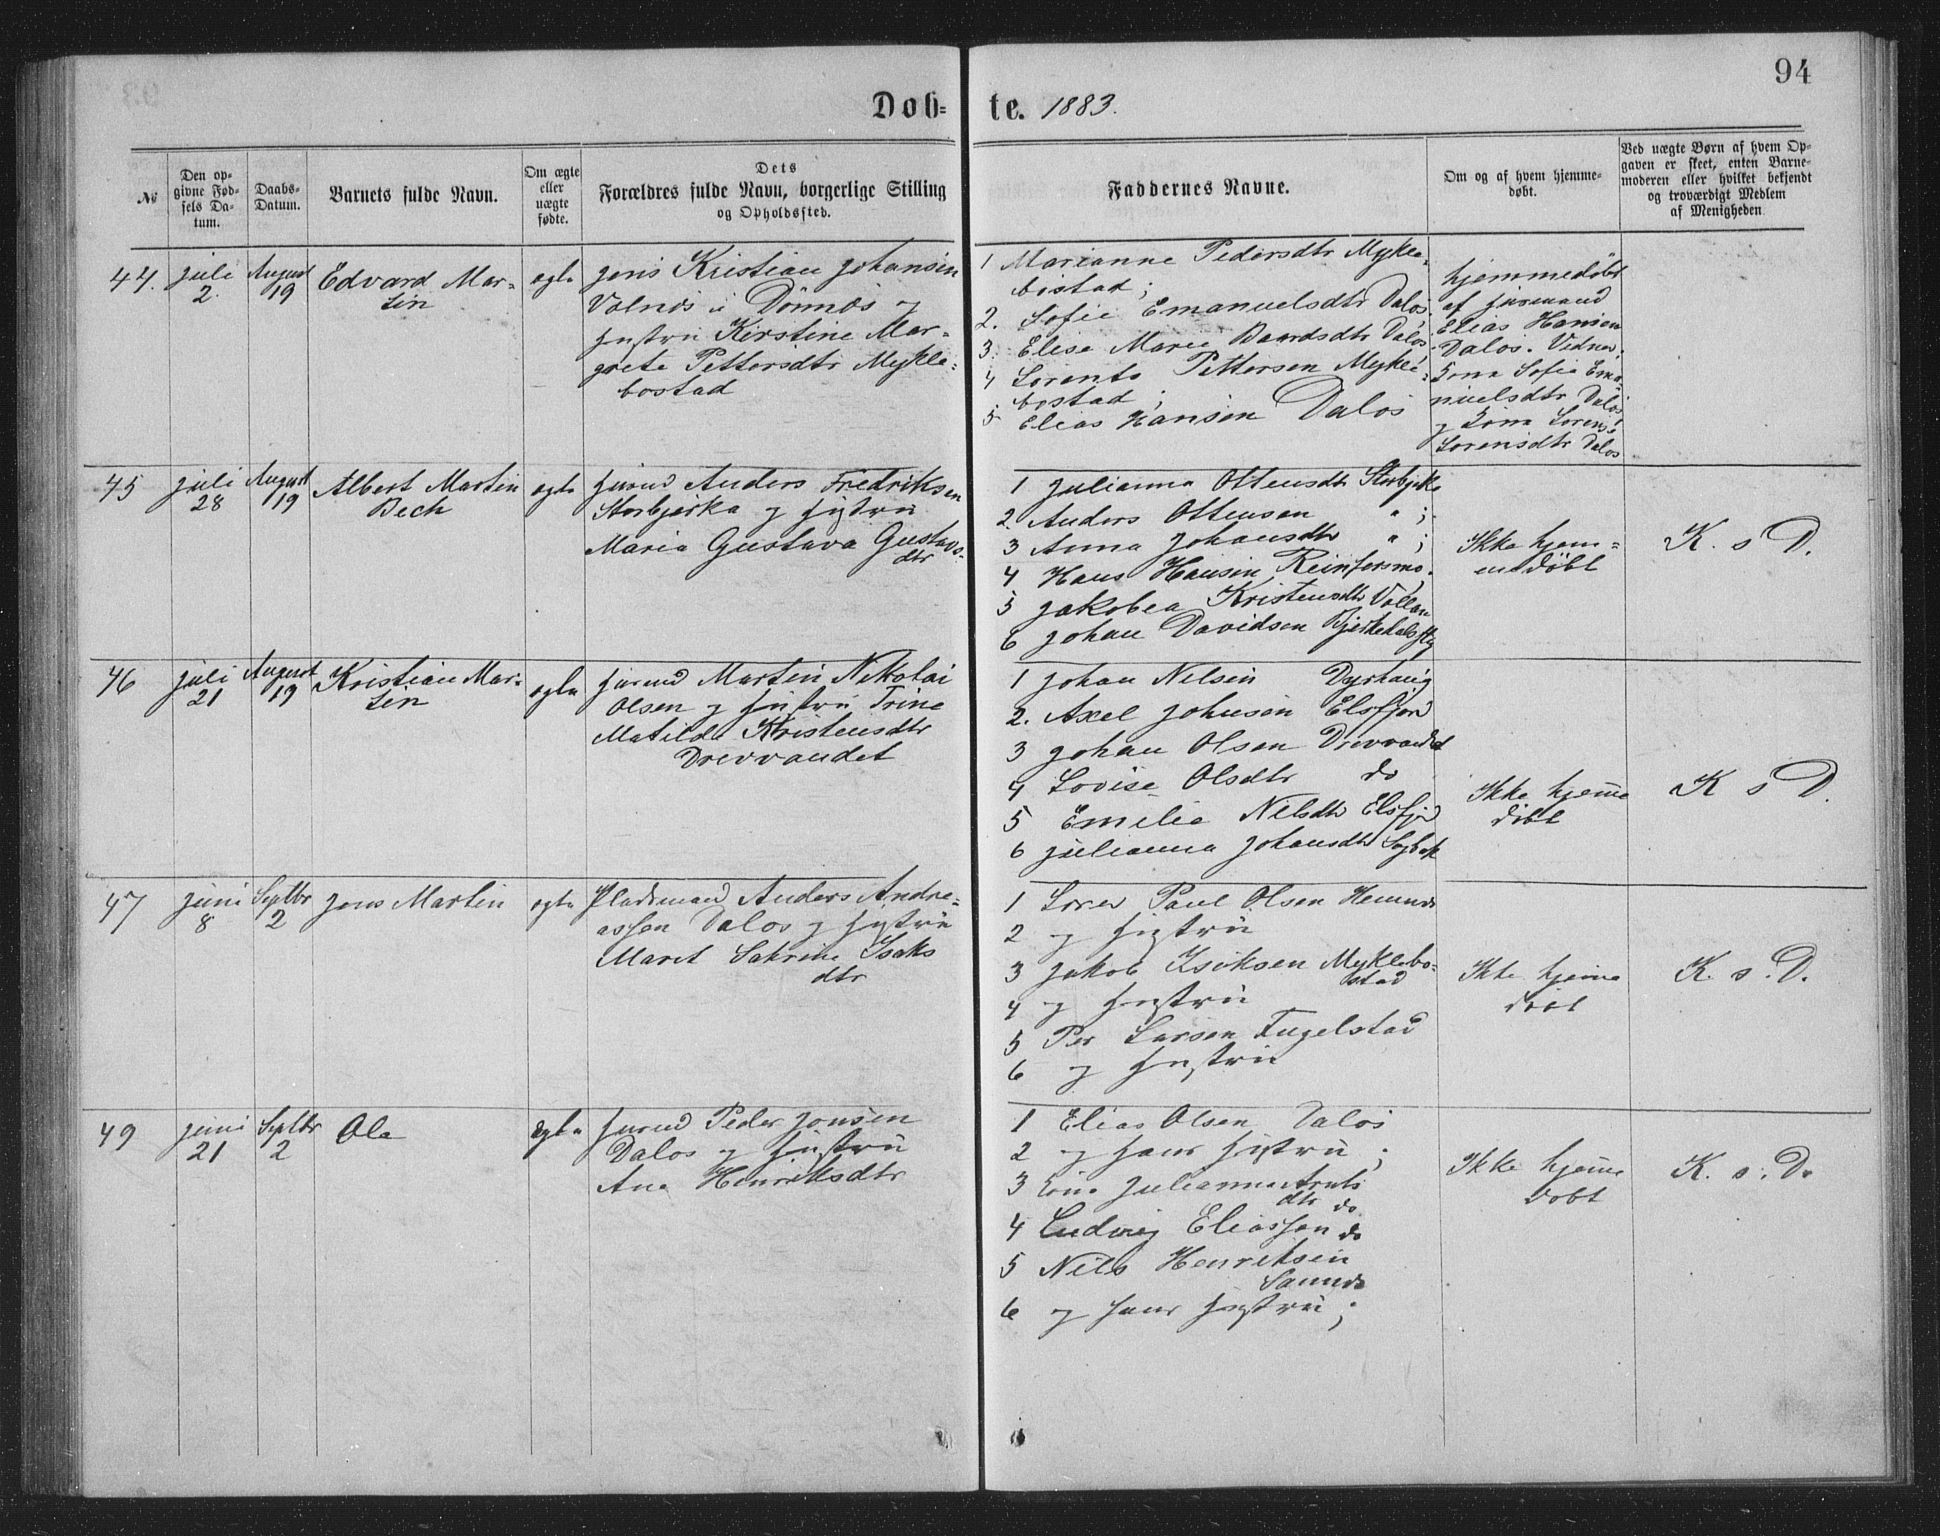 94
Døb= te. 1883.
№
Den op-
givne Fød-
sels Da-
tum.
Daabs-
Datum.
Barnets fulde Navn.
Om ægte
eller
uægte
fødte.
Dets
Forældres fulde Navn, borgerlige Stilling
og Opholdssted.
Faddernes Navne.
Om og af hvem hjemme-
døbt.
Ved uægte Børn af hvem Op-
gaven er skeet, enten Barne-
moderen eller hvilket bekjendt
og troværdigt Medlem
af Menigheden
44.
juli
2.
August
19
Edvard Mar-
tin
ægte
Jens Kristian Johansen
Valnæs i Dönnæs og
Hustru Kirstine Mar-
grete Pettersdtr Mykle-
bostad
1 Marianne Pedersdtr Mykle-
bostad;
2. Sofie Emanuelsdtr Dalos
3. Elise Marie Baardsdtr Dalos
4 Lorents Pettersen Mykle-
bostad;
5 Elias Hansen Dalos
hjemmedöbt
af Gaardmand
Elias Hansen
Dalos. Vidner.
Kona Sofie Ema
nuelsdtr Dalos
og Kona Lorense
Lorensdtr Dalos
45
juli
28
August
19
Albert Martin
Bech
ægte
Anders Fredriksen
Storbjerka og Hustru
Maria Gustava Gustavs-
dtr
1 Julianna Ottensdtr Storbjerka
2. Anders Ottensen " ;
3 Anna Johansdtr " ;
4 Hans Hansen Reinforsmo.
5 Jakobea Kristensdtr Vollan
6 Johan Davidsen
Ikke hjem=
medöbt
K. s D.
46
juli
21
August
19
Kristian Mar-
tin
ægte
Martin Nikolai
Olsen og Hustru Trine
Matilde Kristensdtr
Drevvandet
1 Johan Nilsen Dyrhaug
2. Axel Johnsen Elsfjord
3 Johan Olsen Drevvandet
4 Lovise Olsdtr do
5 Emilie Nilsdtr Elsfjord
6 Julianna Johansdtr
Ikke hjeme
döbt
K s D.
47
juni
8
Septbr
2
Jens Martin
ægte
Pladsmand Anders Andre-
assen Dalos og Hustru
Maret Sakrine Isaks
dtr
1 Paul Olsen Hemnes
2 og Hustru
3 Jakob Isaksen Myklebo-
stad
4 og Hustru
5 Per Larsen Fugelstad
6 og Hustru
Ikke hjeme
döbt
K. s. D.
49
juni
21
Septbr
2
Ole
ægte
Peder Jonsen
Dalos og Hustru
Ane Henriksdtr
1 Elias Olsen Dalos
2 og hans Hustru;
3 Julianna Arnts
dtr do
4 Ludvig Eliassen do
5 Nils Henriksen
6 og hans Hustru;
Ikke hjeme
döbt
K. s. D.